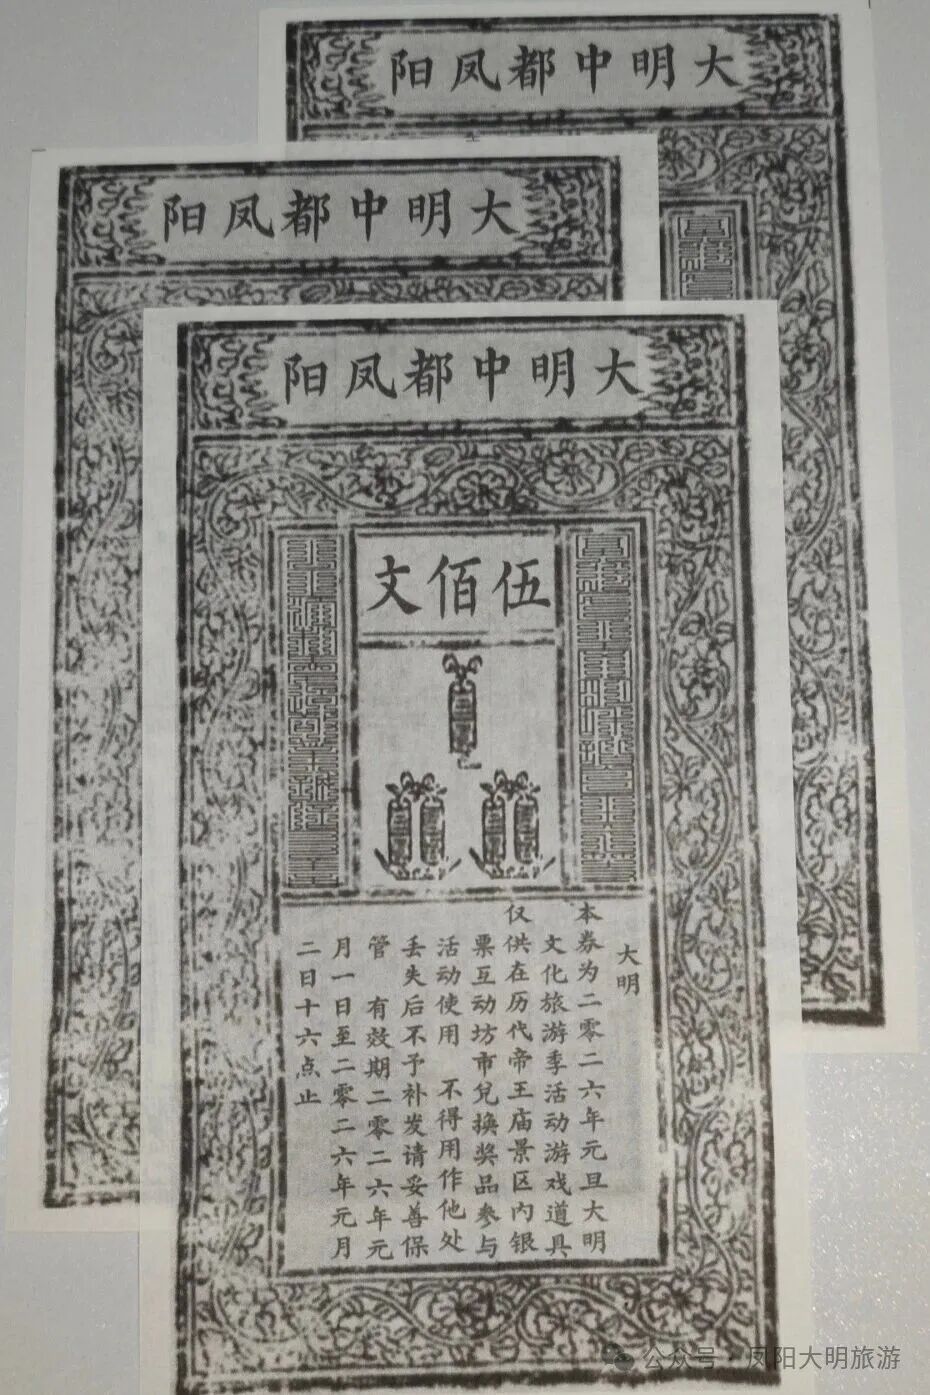 大明中都凤阳
大明中都凤阳
大明中都凤阳
伍佰文
大明
本券为二零二六年元旦大明
文化旅游季活动游戏道具
仅供在历代帝王庙景区内银
票互动坊市兑换奖品参与
活动使用 不得用作他处
丢失后不予补发请妥善保
管 有效期二零二六年元
月一日至二零二六年元月
二日十六点止
公众号·凤阳大明旅游